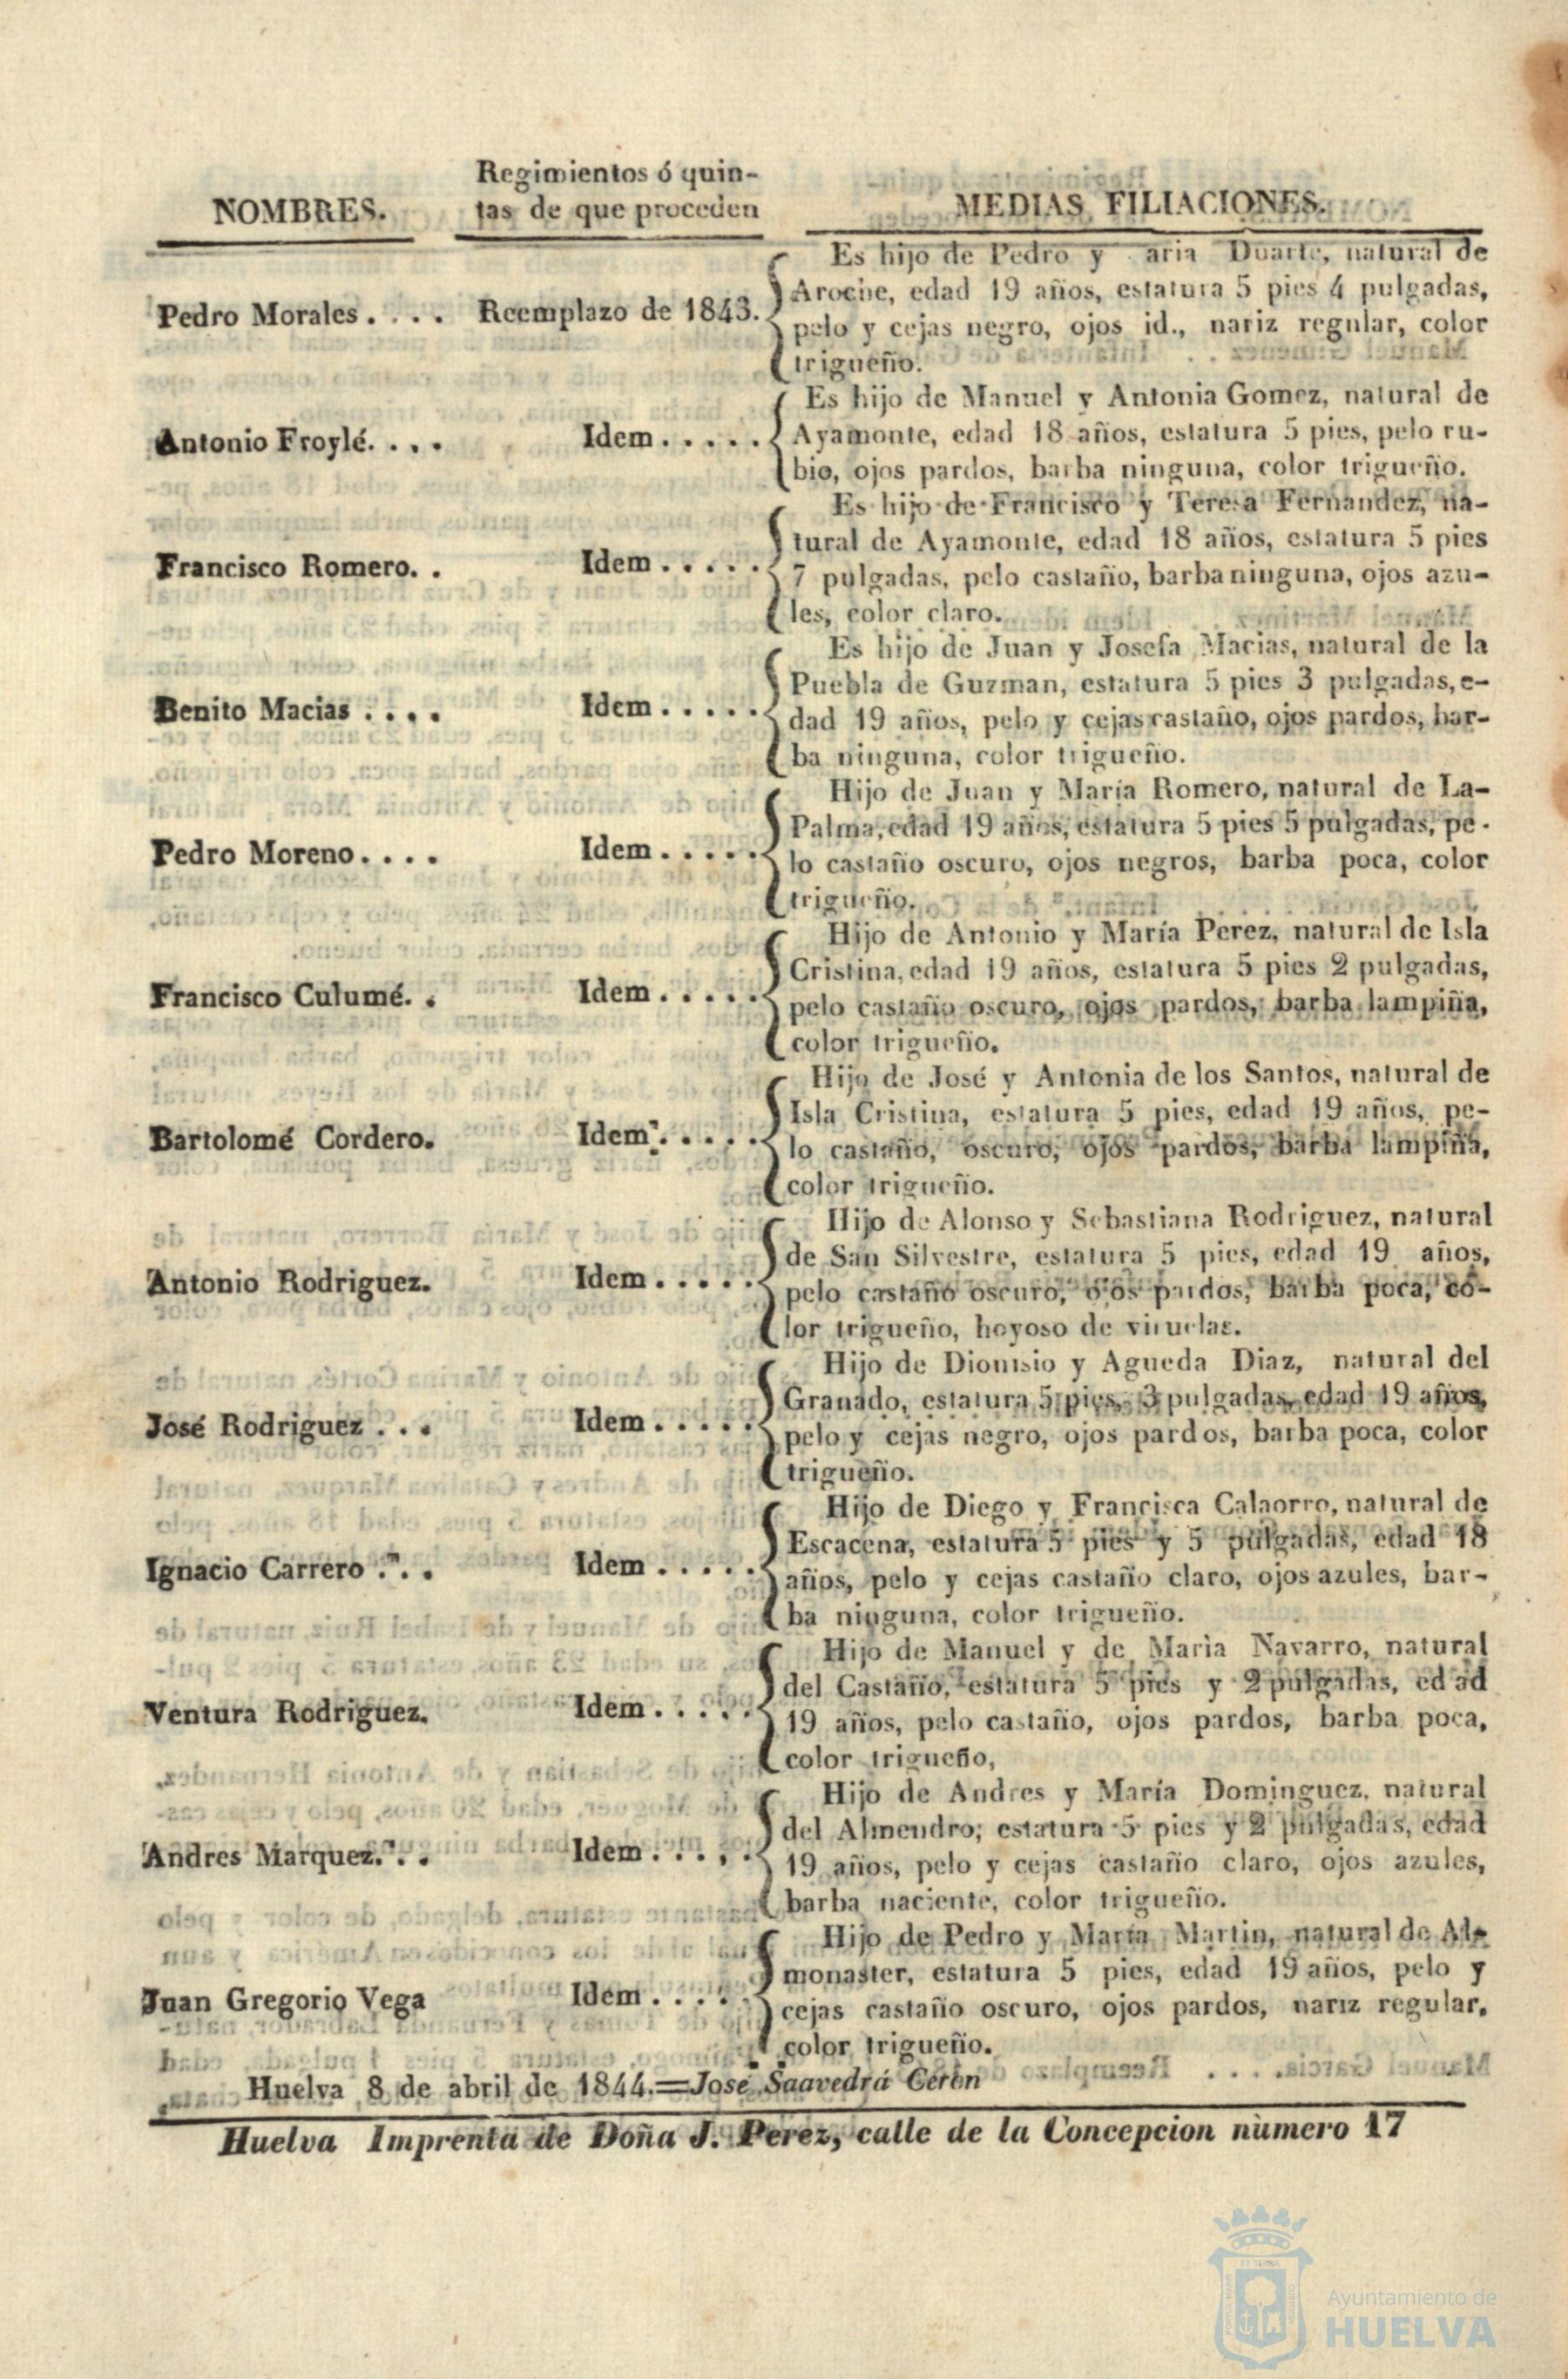 NOMBRES.
Regimientos ó quin-
tas de que proceden
MEDIAS FILIACIONES.
Pedro Morales . . . .
Reemplazo de 1843.
Es hijo de Pedro y aria Duarte, natural de
Aroche, edad 19 años, estatura 5 pies 4 pulgadas,
pelo y cejas negro, ojos id., nariz regular, color
trigueño.
Antonio Froylé. . . .
Idem . . . . .
Es hijo de Manuel y Antonia Gomez, natural de
Ayamonte, edad 18 años, estatura 5 pies, pelo ru-
bio, ojos pardos, barba ninguna, color trigueño.
Francisco Romero. .
Idem . . . . .
Es hijo de Francisco y Teresa Fernandez, na-
tural de Ayamonte, edad 18 años, estatura 5 pies
7 pulgadas, pelo castaño, barba ninguna, ojos azu-
les, color claro.
Benito Macias . . . .
Idem . . . . .
Es hijo de Juan y Josefa Macias, natural de la
Puebla de Guzman, estatura 5 pies 3 pulgadas, e-
dad 19 años, pelo y cejas castaño, ojos pardos, bar-
ba ninguna, color trigueño.
Pedro Moreno . . . .
Idem . . . . .
Hijo de Juan y María Romero, natural de La-
Palma, edad 19 años, estatura 5 pies 5 pulgadas, pe-
lo castaño oscuro, ojos negros, barba poca, color
trigueño.
Francisco Culumé. .
Idem . . . . .
Hijo de Antonio y María Perez, natural de Isla
Cristina, edad 19 años, estatura 5 pies 2 pulgadas,
pelo castaño oscuro, ojos pardos, barba lampiña,
color trigueño.
Bartolomé Cordero.
Idem . . . . .
Hijo de José y Antonia de los Santos, natural de
Isla Cristina, estatura 5 pies, edad 19 años, pe-
lo castaño, oscuro, ojos pardos, barba lampiña,
color trigueño.
Antonio Rodriguez.
Idem . . . . .
Hijo de Alonso y Sebastiana Rodriguez, natural
de San Silvestre, estatura 5 pies, edad 19 años,
pelo castaño oscuro, ojos pardos, barba poca, co-
lor trigueño, hoyoso de viruelas.
José Rodriguez . . .
Idem . . . . .
Hijo de Dionisio y Agueda Diaz, natural del
Granado, estatura 5 pies, 3 pulgadas, edad 19 años,
pelo y cejas negro, ojos pardos, barba poca, color
trigueño.
Ignacio Carrero . . .
Idem . . . . .
Hijo de Diego y Francisca Calaorro, natural de
Escacena, estatura 5 pies y 5 pulgadas, edad 18
años, pelo y cejas castaño claro, ojos azules, bar-
ba ninguna, color trigueño.
Ventura Rodriguez.
Idem . . . . .
Hijo de Manuel y de Maria Navarro, natural
del Castaño, estatura 5 pies y 2 pulgadas, edad
19 años, pelo castaño, ojos pardos, barba poca,
color trigueño,
Andres Marquez. . .
Idem . . . . .
Hijo de Andres y María Dominguez, natural
del Almendro; estatura 5 pies y 2 pulgadas, edad
19 años, pelo y cejas castaño claro, ojos azules,
barba naciente, color trigueño.
Juan Gregorio Vega
Idem . . . . .
Hijo de Pedro y María Martin, natural de Al-
monaster, estatura 5 pies, edad 19 años, pelo y
cejas castaño oscuro, ojos pardos, nariz regular,
color trigueño.
Huelva 8 de abril de 1844.=José Saavedra Cerèn
Huelva Imprenta de Doña J. Perez, calle de la Concepcion nùmero 17
Ayuntamiento de
HUELVA